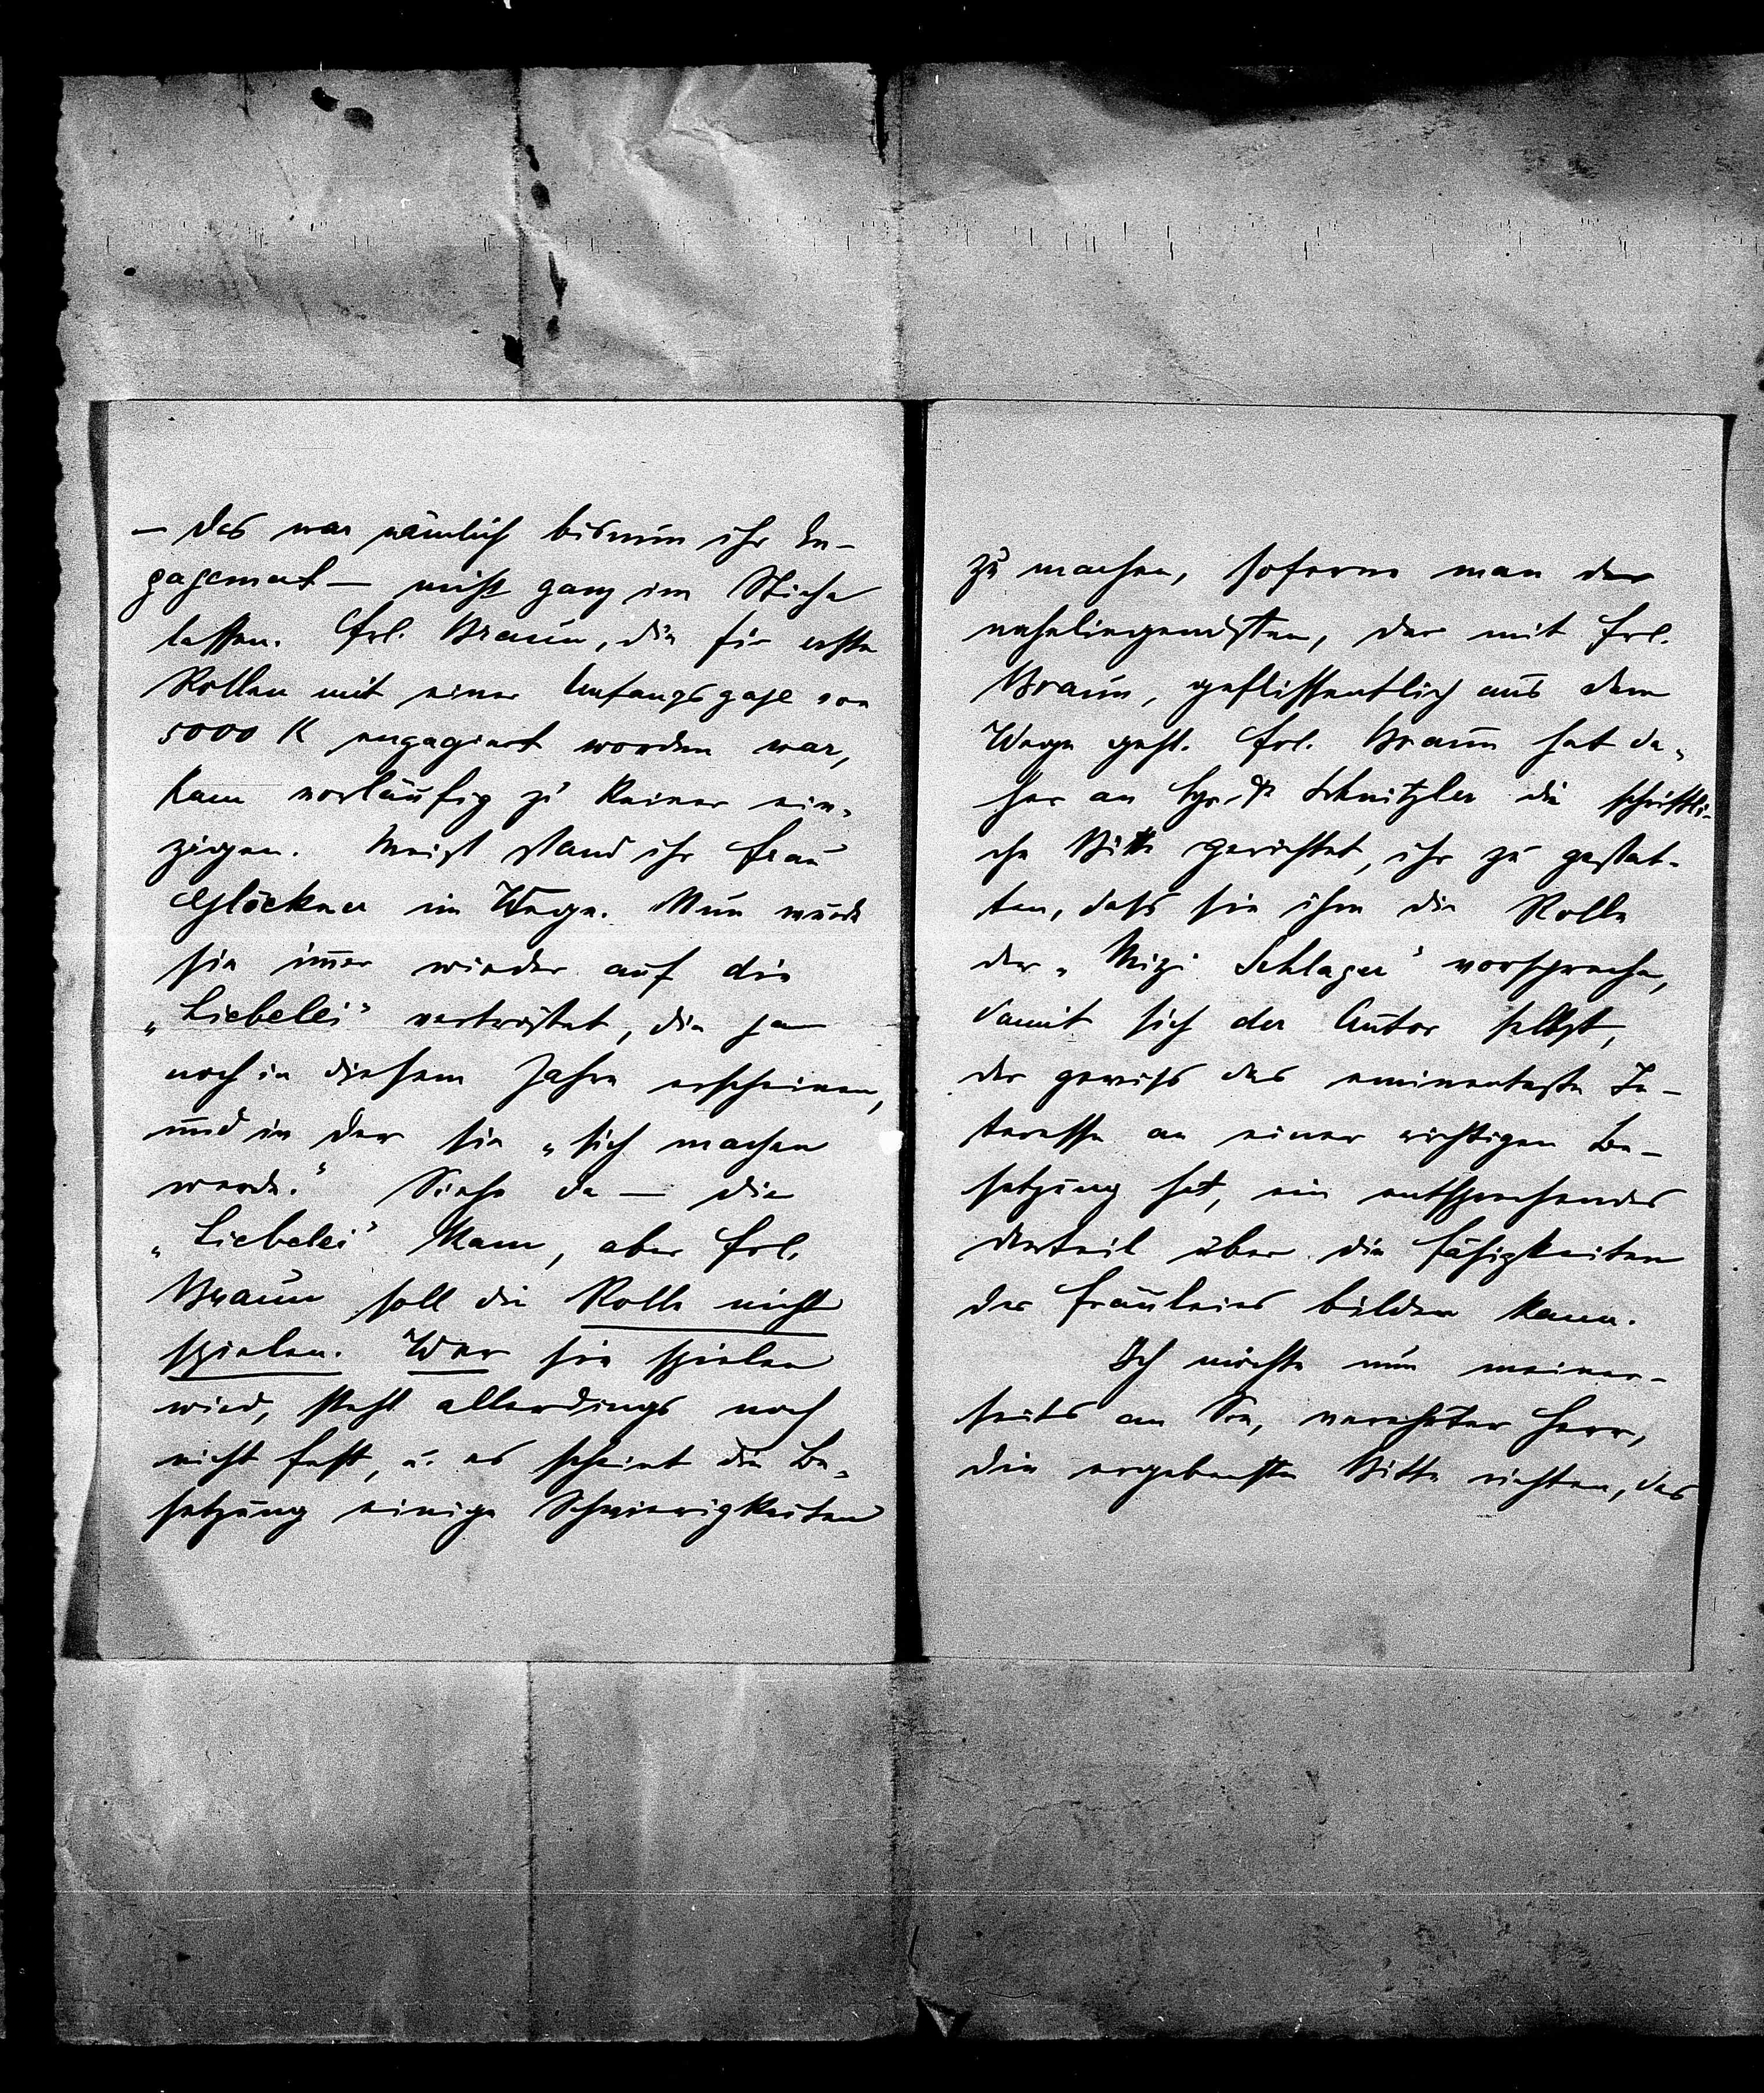 — das war nämlich bisnun ihr En-
gagement — nicht ganz im Stiche
lassen. Frl. Braun, die für erste
Rollen mit einer Anfangsgage von
5000 K engagiert worden war,
kam vorläufig zu keiner ein-
zigen. Meist stand ihr Frau
Glöckner im Wege. Nun wurde
sie im̄er wieder auf die
„Liebelei" vertröstet, die ja
noch in diesem Jahre erscheinen,
und in der sie „sich machen
werde." Siehe da — die
„Liebelei" kam, aber Frl.
Braun soll die Rolle nicht
spielen. Wer sie spielen
wird, steht allerdings noch
nicht fest, u. es scheint die Be-
setzung einige Schwierigkeiten
zu machen, soferne man der
naheliegendsten, der mit Frl.
Braun, geflissentlich aus dem
Wege geht. Frl. Braun hat da-
her an Hrn. Dr Schnitzler die schriftli-
che Bitte gerichtet, ihr zu gestat-
ten, dass sie ihm die Rolle
der „Mizi Schlager" vorspreche,
damit sich der Autor selbst,
der gewiss das eminenteste In-
teresse an einer richtigen Be-
setzung hat, ein entsprechendes
Urteil über die Fähigkeiten
des Fräuleins bilden kann.
Ich möchte nun meiner-
seits an Sie, verehrter Herr,
die ergebenste Bitte richten, das